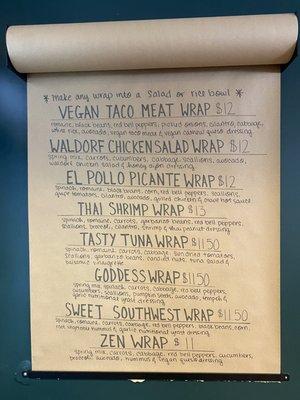 * Make any wrap into a Salad or rice bowl *
VEGAN TACO MEAT WRAP $12
romaine, black beans, red bell peppers, pickled onions, cilantro, cabbage,
white rice, avocado, vegan taco meat & vegan cashew queso dressing
WALDORF CHICKEN SALAD WRAP $12
spring mix, carrots, cucumbers, cabbage, scallions, avocado,
waldorf chicken salad & honey dijon dressing
EL POLLO PICANTE WRAP $12
spinach, romaine, black beans, corn, red bell peppers, scallions,
grape tomatoes, cilantro, avocado, grilled chicken & hot sauce
THAI SHRIMP WRAP $13
spinach, romaine, carrots, garbanzo beans, red bell peppers,
scallions, broccoli, cilantro, shrimp & thai peanut dressing
TASTY TUNA WRAP $11.50
spinach, romaine, carrots, cabbage, sun dried tomatoes,
scallions, garbanzo beans, candied nuts, tuna salad &
balsamic vinaigrette
GODDESS WRAP $11.50
spring mix, spinach, carrots, cabbage, red bell peppers,
cucumbers, scallions, pumpkin seeds, avocado, tempeh &
garlic nutritional yeast dressing
SWEET SOUTHWEST WRAP $11.50
spinach, romaine, carrots, cabbage, red bell peppers, black beans, corn,
hummus & garlic nutritional yeast dressing
ZEN WRAP $11
spring mix, carrots, cabbage, red bell peppers, cucumbers,
broccoli, avocado, hummus & vegan dressing